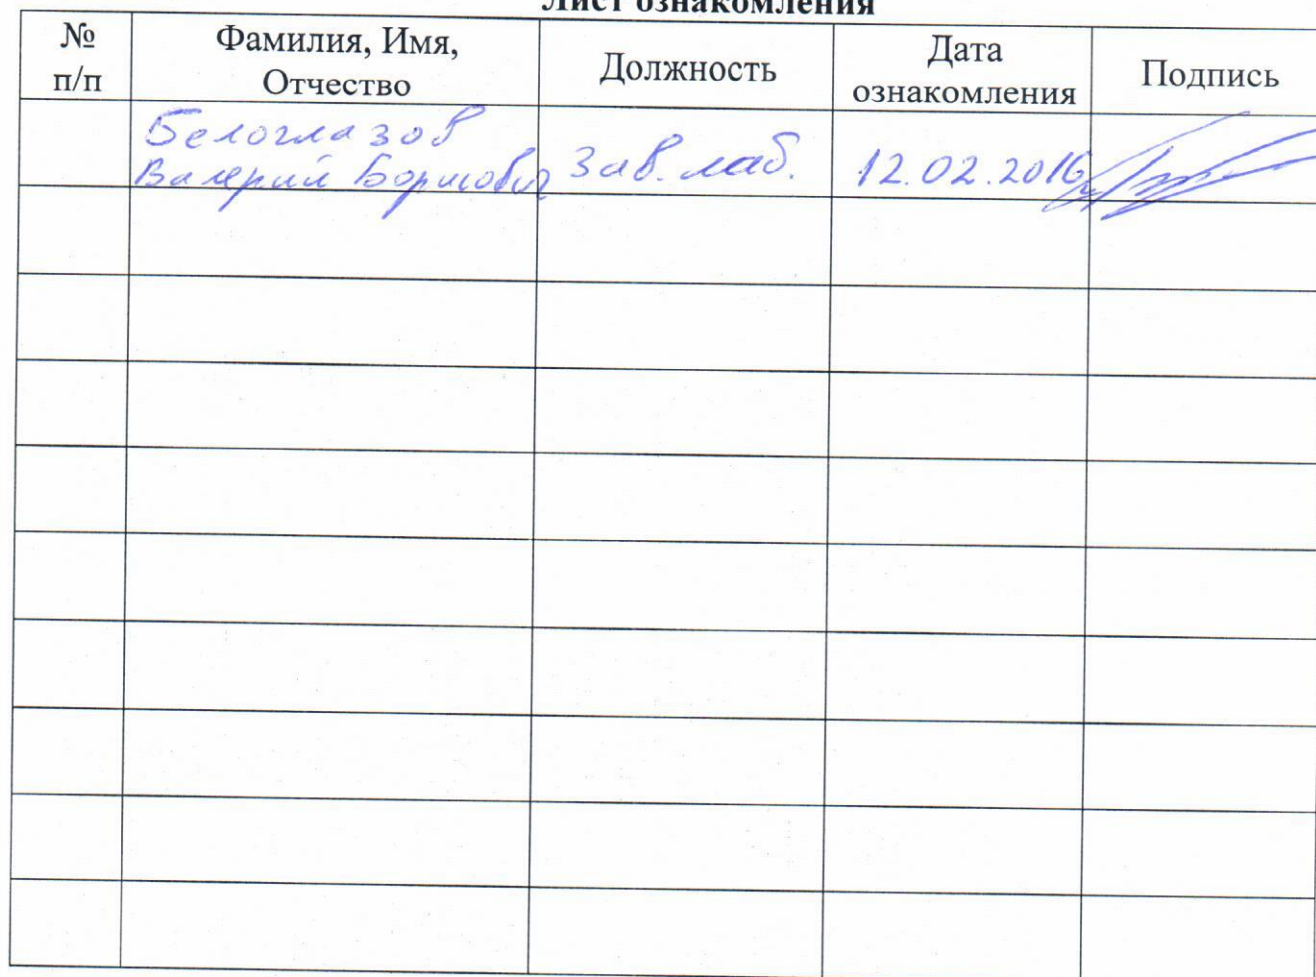 Лист ознакомления
№ п/п
Фамилия, Имя, Отчество
Должность
Дата ознакомления
Подпись
Белоглазов
Валерий Борисович
Зав. лаб.
12.02.2016